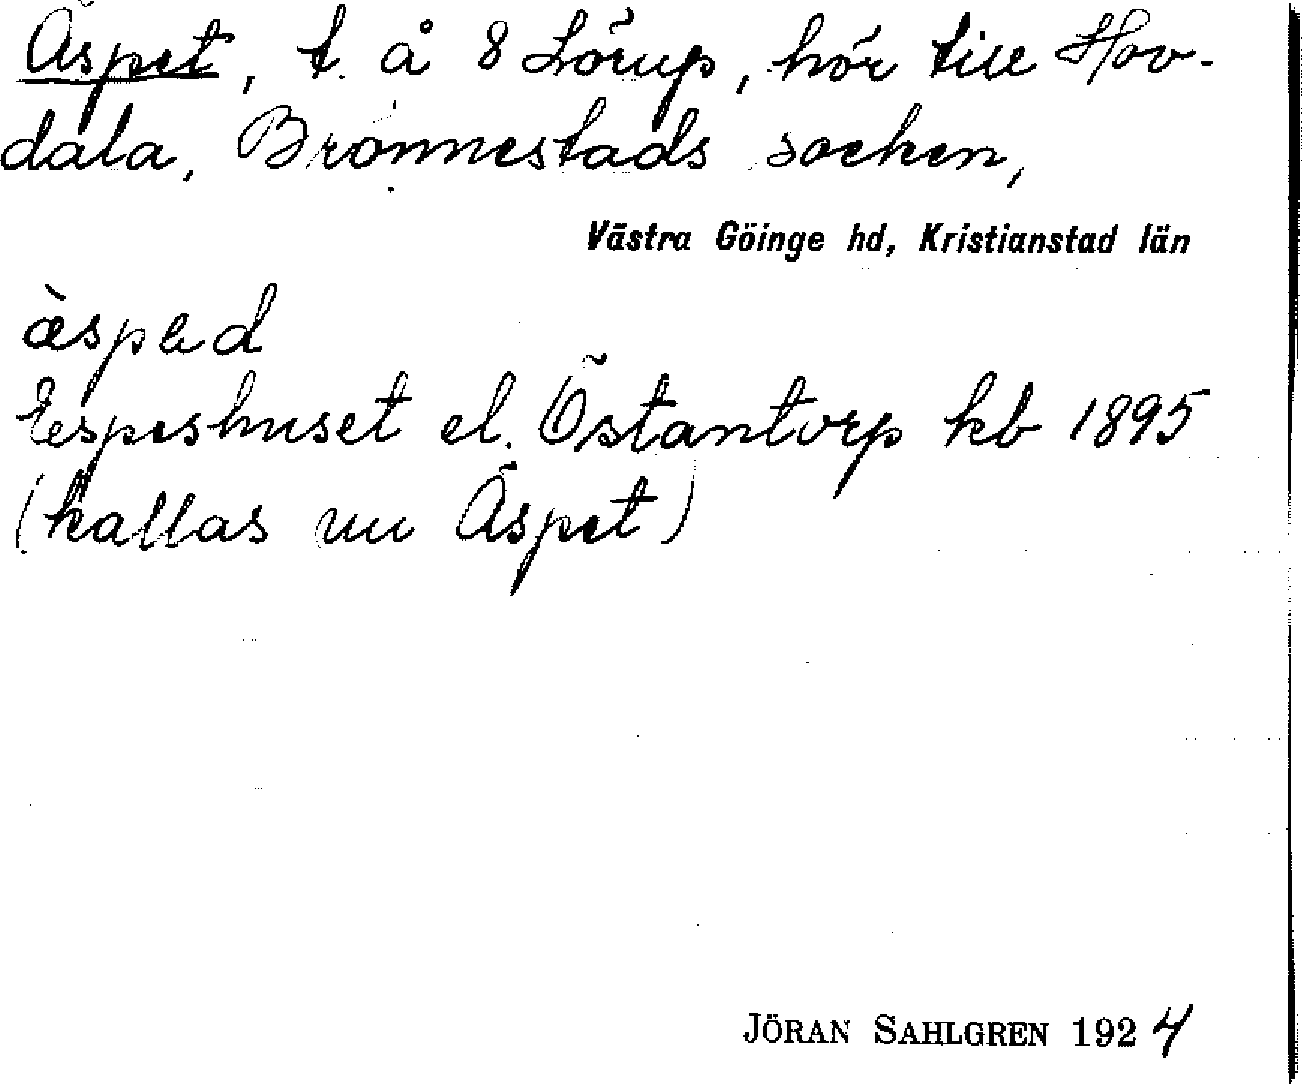 Äspet, t. å 8 Lörup, hör till Hov-
dala, Brönnestads socken,
Västra Göinge hd, Kristianstad län
æ̀spəd
Espeshuset el. Östantorp kb 1895
(kallas nu Äspet)
JÖRAN SAHLGREN 1924